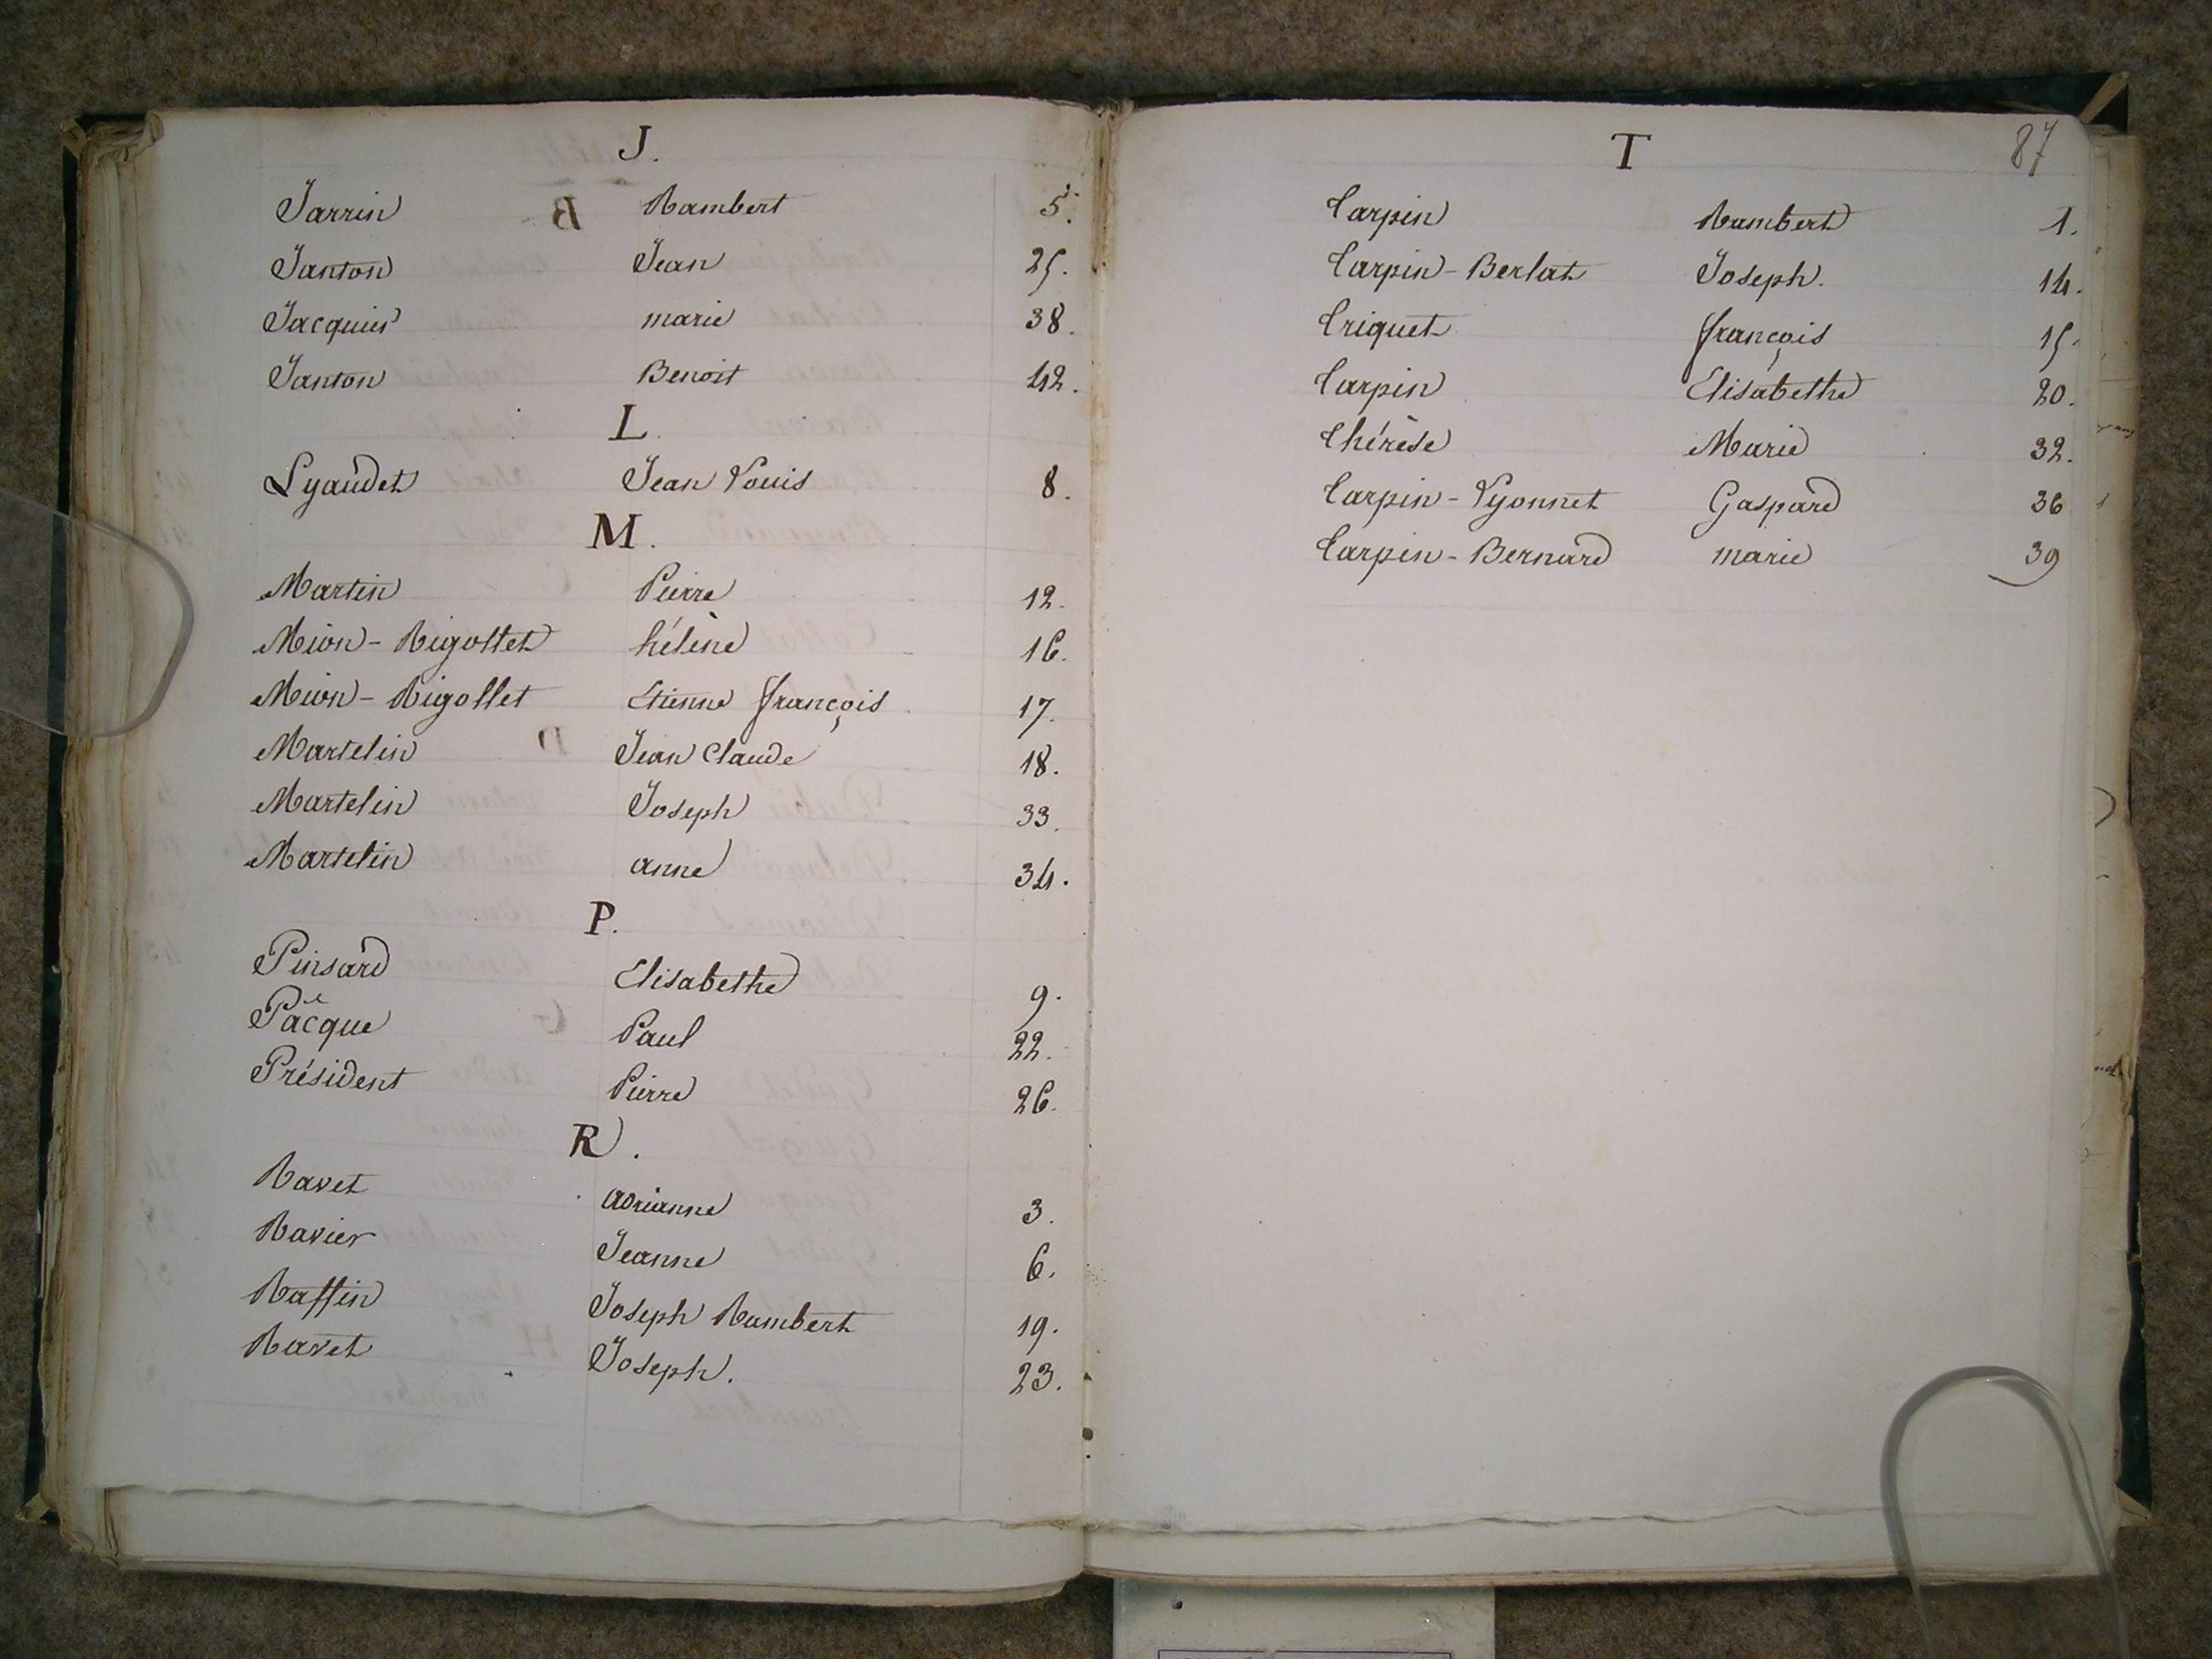 J.
Jarrin Rambert 5.
Janton Jean 25.
Jacquier marie 38.
Janton Benoit 42.
L.
Lyaudet Jean Louis 8.
M.
Martin Pierre 12.
Mion - Rigollet hélène 16.
Mion - Rigollet Etienne françois 17.
Martelin Jean Claude 18.
Martelin Joseph 33.
Martelin anne 34.
P.
Pinsard Elisabethe 9.
Pâcque Paul 22.
Président Pierre 26.
R.
Ravet adrianne 3.
Ravier Jeanne 6.
Raffin Joseph Rambert 19.
Ravet Joseph. 23.
87
T
Tarpin Rambert 1.
Tarpin - Berlat Joseph. 14.
Triquet françois 15.
Tarpin Elisabethe 20.
Thérèse Marie 32.
Tarpin - Lyonnet Gaspard 36
Tarpin - Bernard marie 39